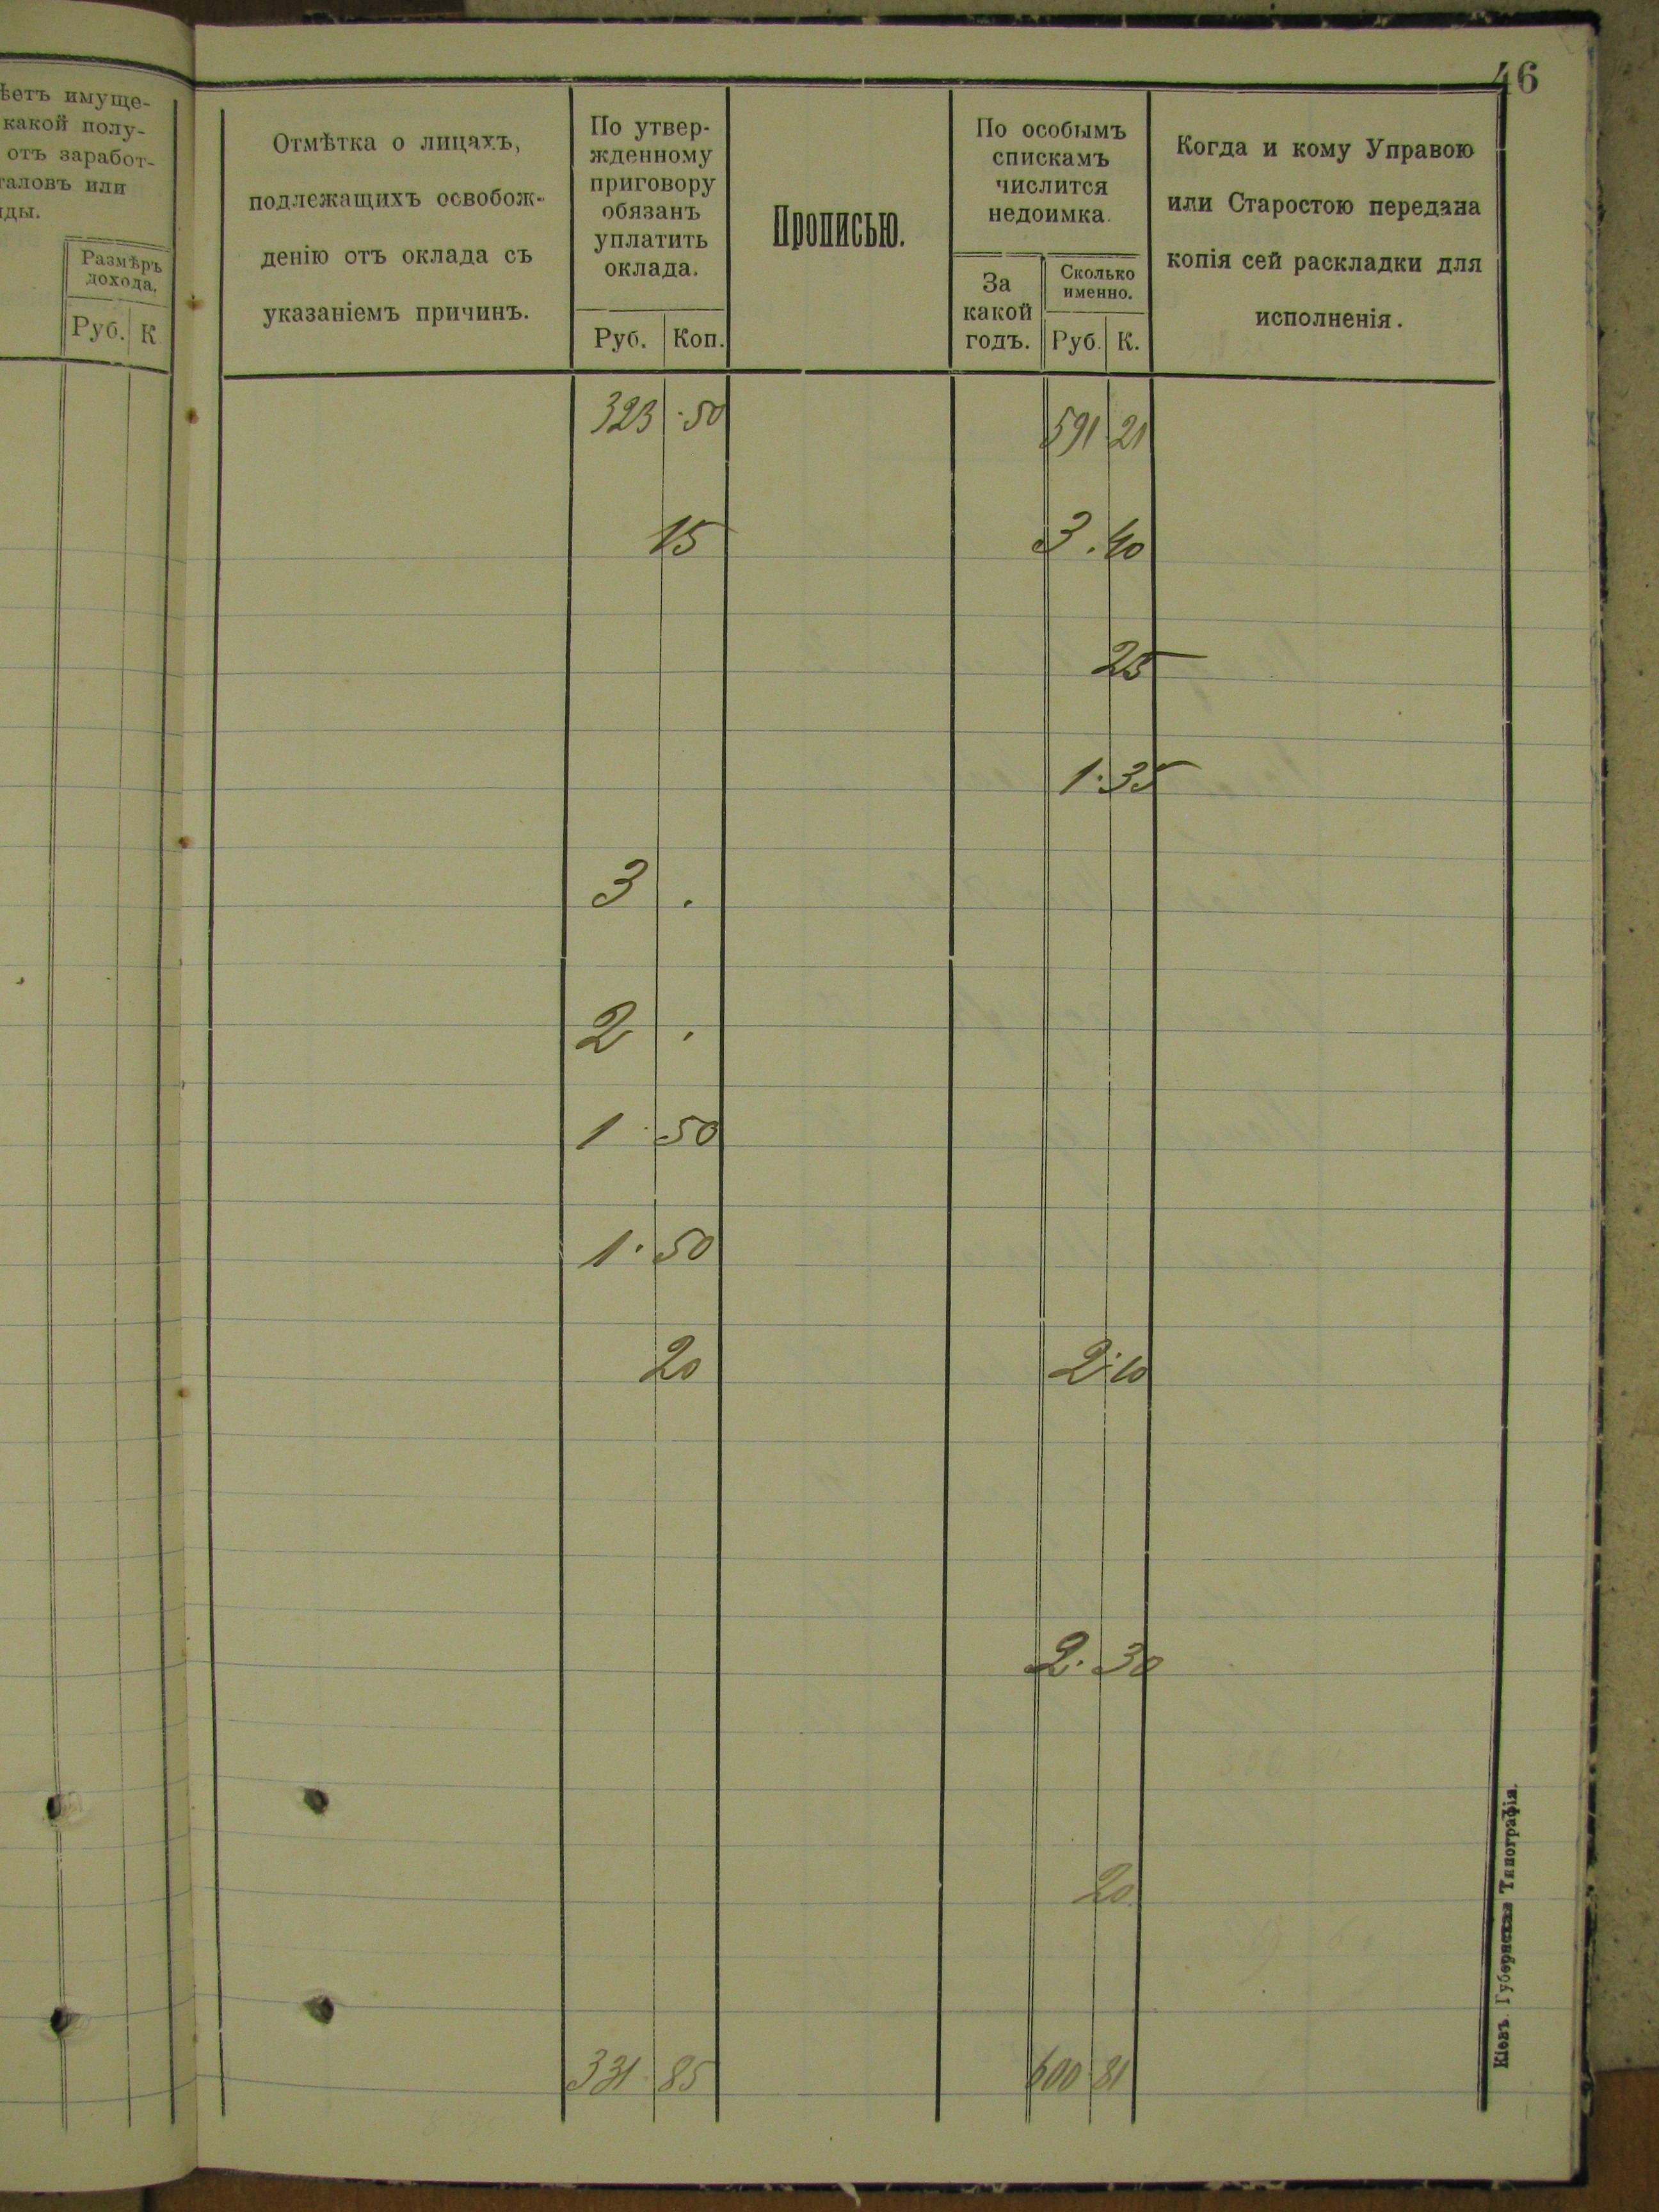 46
ѣетъ имуще-
какой полу-
отъ заработ-
таловъ или
ды.
Размѣръ
дохода.
Руб. К
Отмѣтка о лицахъ,
подлежащихъ освобож-
денію отъ оклада съ
указаніемъ причинъ.
По утвер-
жденному
приговору
обязанъ
уплатить
оклада.
Руб. Коп.
Прописью.
По особымъ
спискамъ
числится
недоимка.
За
какой
годъ.
Сколько
именно.
Руб. К.
Когда и кому Управою
или Старостою передана
копія сей раскладки для
исполненія.
323 · 50 591 21
15 3 . 40
25
1 · 35
3 .
2 .
1 · 50
1 · 50
20 2 · 10
2 · 30
20
331 · 85 600 81
Кіевъ. Губернская Типографія.